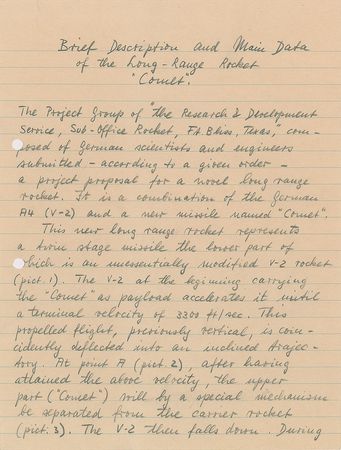 Brief Description and Main Data
of the Long-Range Rocket
"Comet".
The Project Group of "the Research & Development
Service, Sub-Office Rocket, Ft. Bliss, Texas," com-
posed of German scientists and engineers
submitted - according to a given order -
a project proposal for a novel long range
rocket. It is a combination of the German
A4 (V-2) and a new missile named "Comet".
This new long range rocket represents
a twin stage missile the lower part of
which is an unessentially modified V-2 rocket
(pict. 1). The V-2 at the beginning carrying
the "Comet" as payload accelerates it until
a terminal velocity of 3300 ft/sec. This
propelled flight, previously vertical, is coin-
cidently deflected into an inclined trajec-
tory. At point A (pict. 2), after having
attained the above velocity, the upper
part ("Comet") will by a special mechanism
be separated from the carrier rocket
(pict. 3). The V-2 then falls down. During